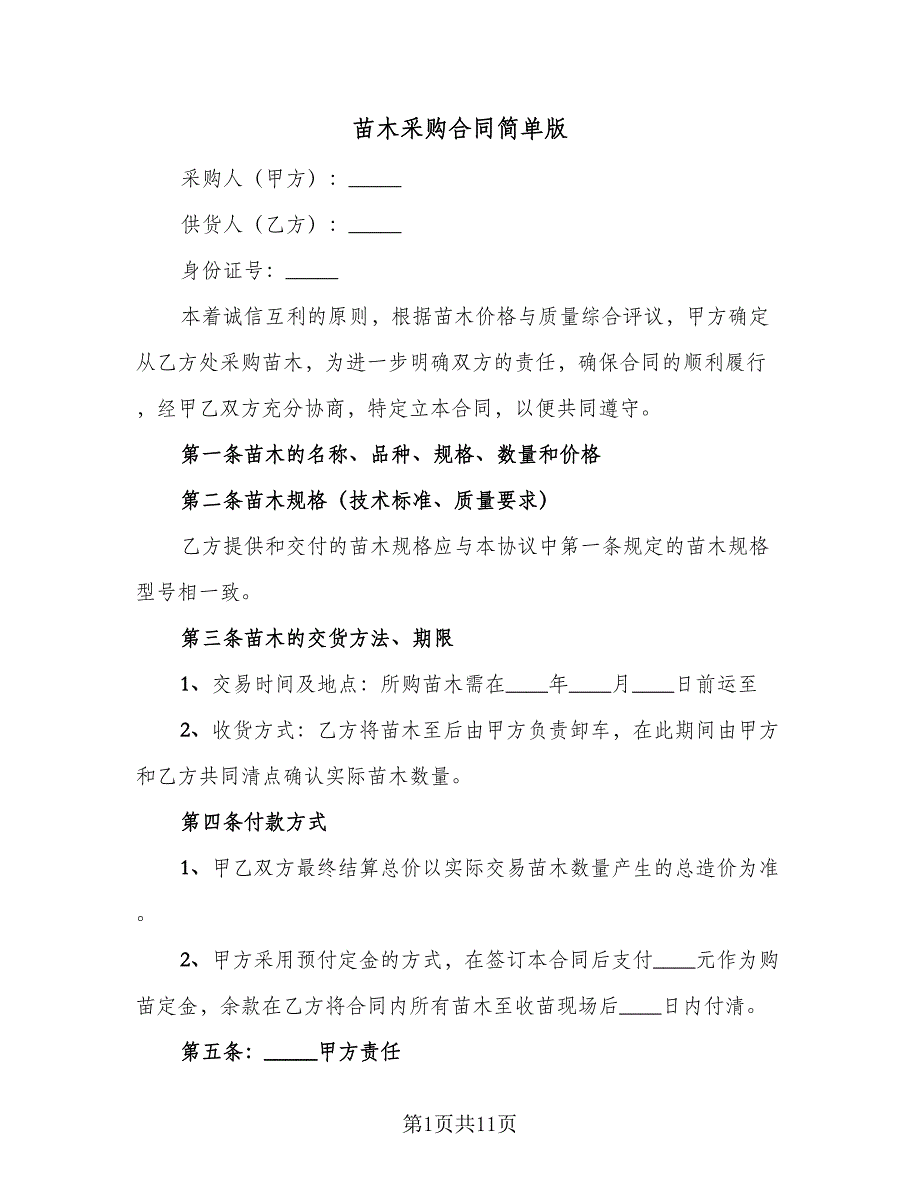 苗木采购合同简单版
采购人（甲方）：_____
供货人（乙方）：_____
身份证号：_____
本着诚信互利的原则，根据苗木价格与质量综合评议，甲方确定
从乙方处采购苗木，为进一步明确双方的责任，确保合同的顺利履行
，经甲乙双方充分协商，特定立本合同，以便共同遵守。
第一条苗木的名称、品种、规格、数量和价格
第二条苗木规格（技术标准、质量要求）
乙方提供和交付的苗木规格应与本协议中第一条规定的苗木规格
型号相一致。
第三条苗木的交货方法、期限
1、交易时间及地点：所购苗木需在____年____月____日前运至
2、收货方式：乙方将苗木至后由甲方负责卸车，在此期间由甲方
和乙方共同清点确认实际苗木数量。
第四条付款方式
1、甲乙双方最终结算总价以实际交易苗木数量产生的总造价为准
。
2、甲方采用预付定金的方式，在签订本合同后支付____元作为购
苗定金，余款在乙方将合同内所有苗木至收苗现场后____日内付清。
第五条：_____甲方责任
第1页共11页